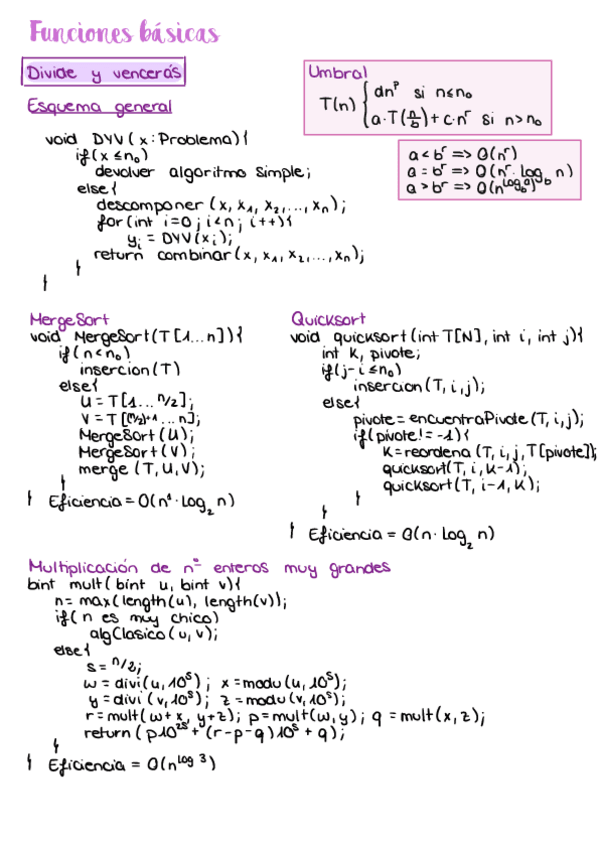 Funciones básicas
Divide y vencerás
Esquema general
void DYV (x: Problema){
if(x ≤ n₀)
devolver algoritmo simple;
else{
descomponer (x, x₁, x₂, ..., xₙ);
for(int i=0; i<n; i++){
yᵢ = DYV(xᵢ);
return combinar(x, x₁, x₂, ..., xₙ);
}
}
Umbral
T(n) { dnᵖ si n≤n₀
a·T(n/b) + c·nʳ si n>n₀
a < bʳ => Θ(nʳ)
a = bʳ => Θ(nʳ · log_b n)
a > bʳ => Θ(n^(log_b a))
MergeSort
void MergeSort(T[1...n]){
if(n<n₀)
insercion(T)
else{
U = T[1... n/2];
V = T[(n/2)+1 ... n];
MergeSort(U);
MergeSort(V);
merge (T, U, V);
}
} Eficiencia = O(n¹ · log₂ n)
Quicksort
void quicksort(int T[N], int i, int j){
int k, pivote;
if(j-i ≤ n₀)
insercion(T, i, j);
else{
pivote = encuentraPivote(T, i, j);
if(pivote != -1){
K=reordena (T, i, j, T[pivote]);
quicksort(T, i, K-1);
quicksort(T, i-1, K);
}
}
} Eficiencia = Θ(n · log₂ n)
Multiplicación de nº enteros muy grandes
bint mult( bint u, bint v){
n= max(length(u), length(v));
if( n es muy chico)
algClasico (u, v);
else{
s= n/2;
w = divi(u, 10ˢ) ; x = modu(u, 10ˢ);
y = divi (v, 10ˢ) ; z = modu(v, 10ˢ);
r = mult( w+x, y+z); p = mult(w, y); q = mult(x, z);
return ( p10²ˢ + (r-p-q)10ˢ + q);
}
} Eficiencia = O(n^(log 3))